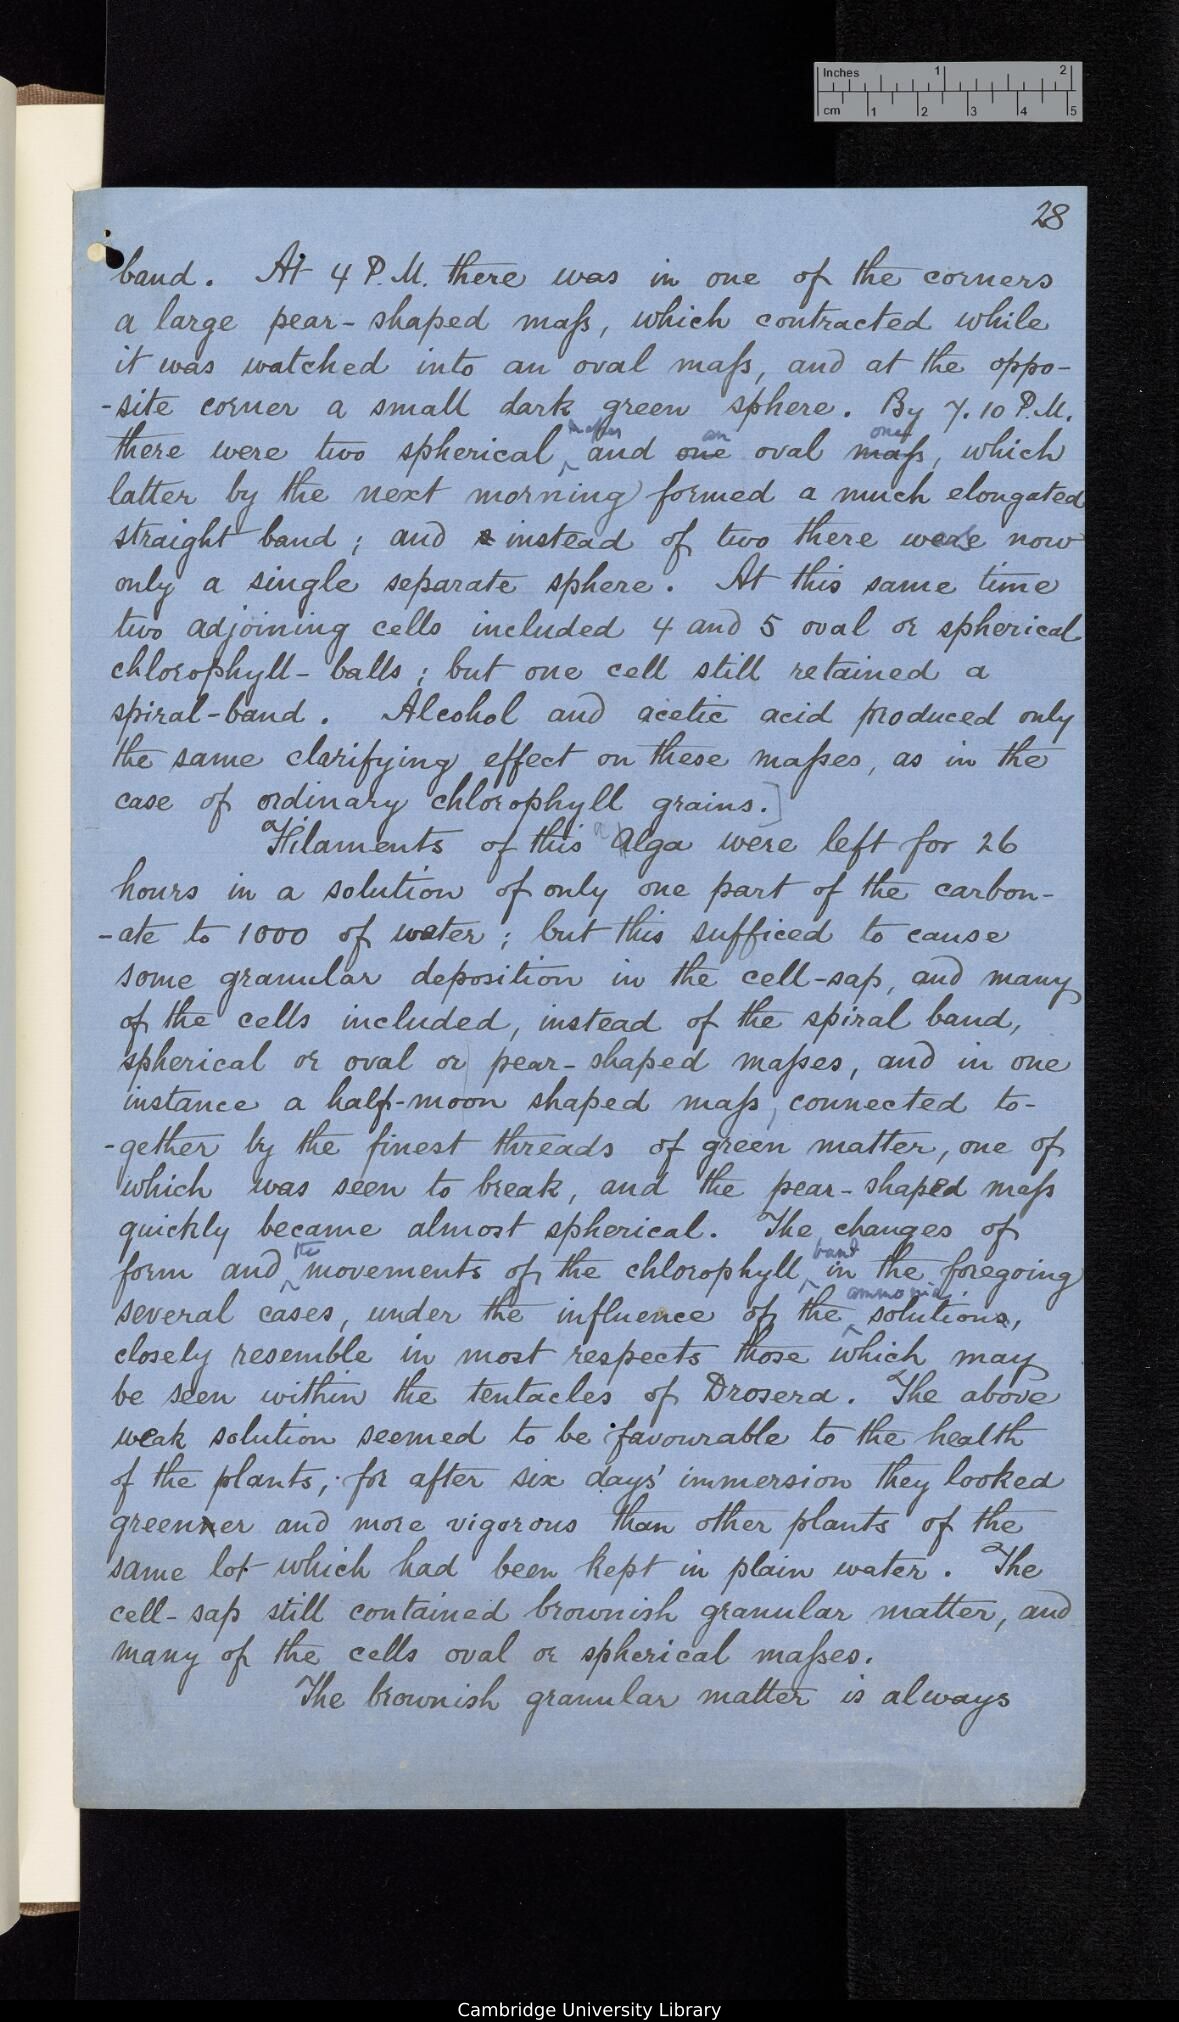 Inches 1 2
cm 1 2 3 4 5
28
band. At 4 P.M. there was in one of the corners
a large pear-shaped mass, which contracted while
it was watched into an oval mass, and at the oppo-
-site corner a small dark green sphere. By 7.10 P.M.
there were two spherical masses and one an oval mass one, which
latter by the next morning formed a much elongated
straight band; and instead of two there were now
only a single separate sphere. At this same time
two adjoining cells included 4 and 5 oval or spherical
chlorophyll-balls; but one cell still retained a
spiral-band. Alcohol and acetic acid produced only
the same clarifying effect on these masses, as in the
case of ordinary chlorophyll grains.]
Filaments of this Alga were left for 26
hours in a solution of only one part of the carbon-
-ate to 1000 of water; but this sufficed to cause
some granular deposition in the cell-sap, and many
of the cells included, instead of the spiral band,
spherical or oval or pear-shaped masses, and in one
instance a half-moon shaped mass, connected to-
-gether by the finest threads of green matter, one of
which was seen to break, and the pear-shaped mass
quickly became almost spherical. The changes of
form and the movements of the chlorophyll band in the foregoing
several cases, under the influence of the ammonia solutions,
closely resemble in most respects those which may
be seen within the tentacles of Drosera. The above
weak solution seemed to be favourable to the health
of the plants; for after six days' immersion they looked
greenner and more vigorous than other plants of the
same lot which had been kept in plain water. The
cell-sap still contained brownish granular matter, and
many of the cells oval or spherical masses.
The brownish granular matter is always
Cambridge University Library